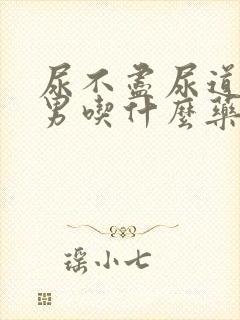 尿不盡尿道
男喫什麼藥
瑶小七